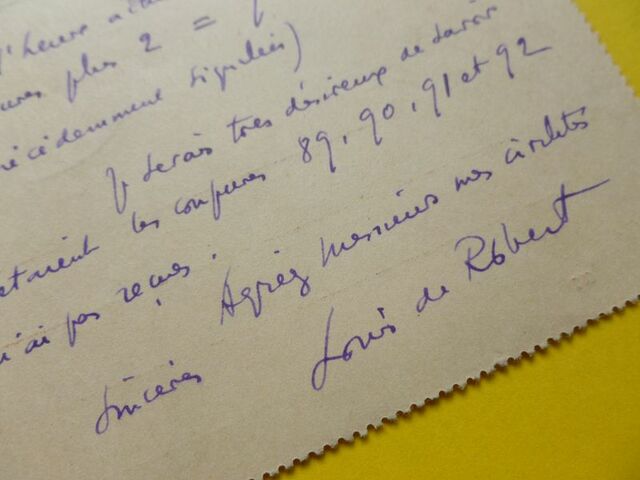 l'heure
plus 2 =
précédemment signalées)
Je serais très désireux de savoir
les coupures 89, 90, 91 et 92
n'ai pas reçues.
Agréez Messieurs mes civilités
sincères
Louis de Robert